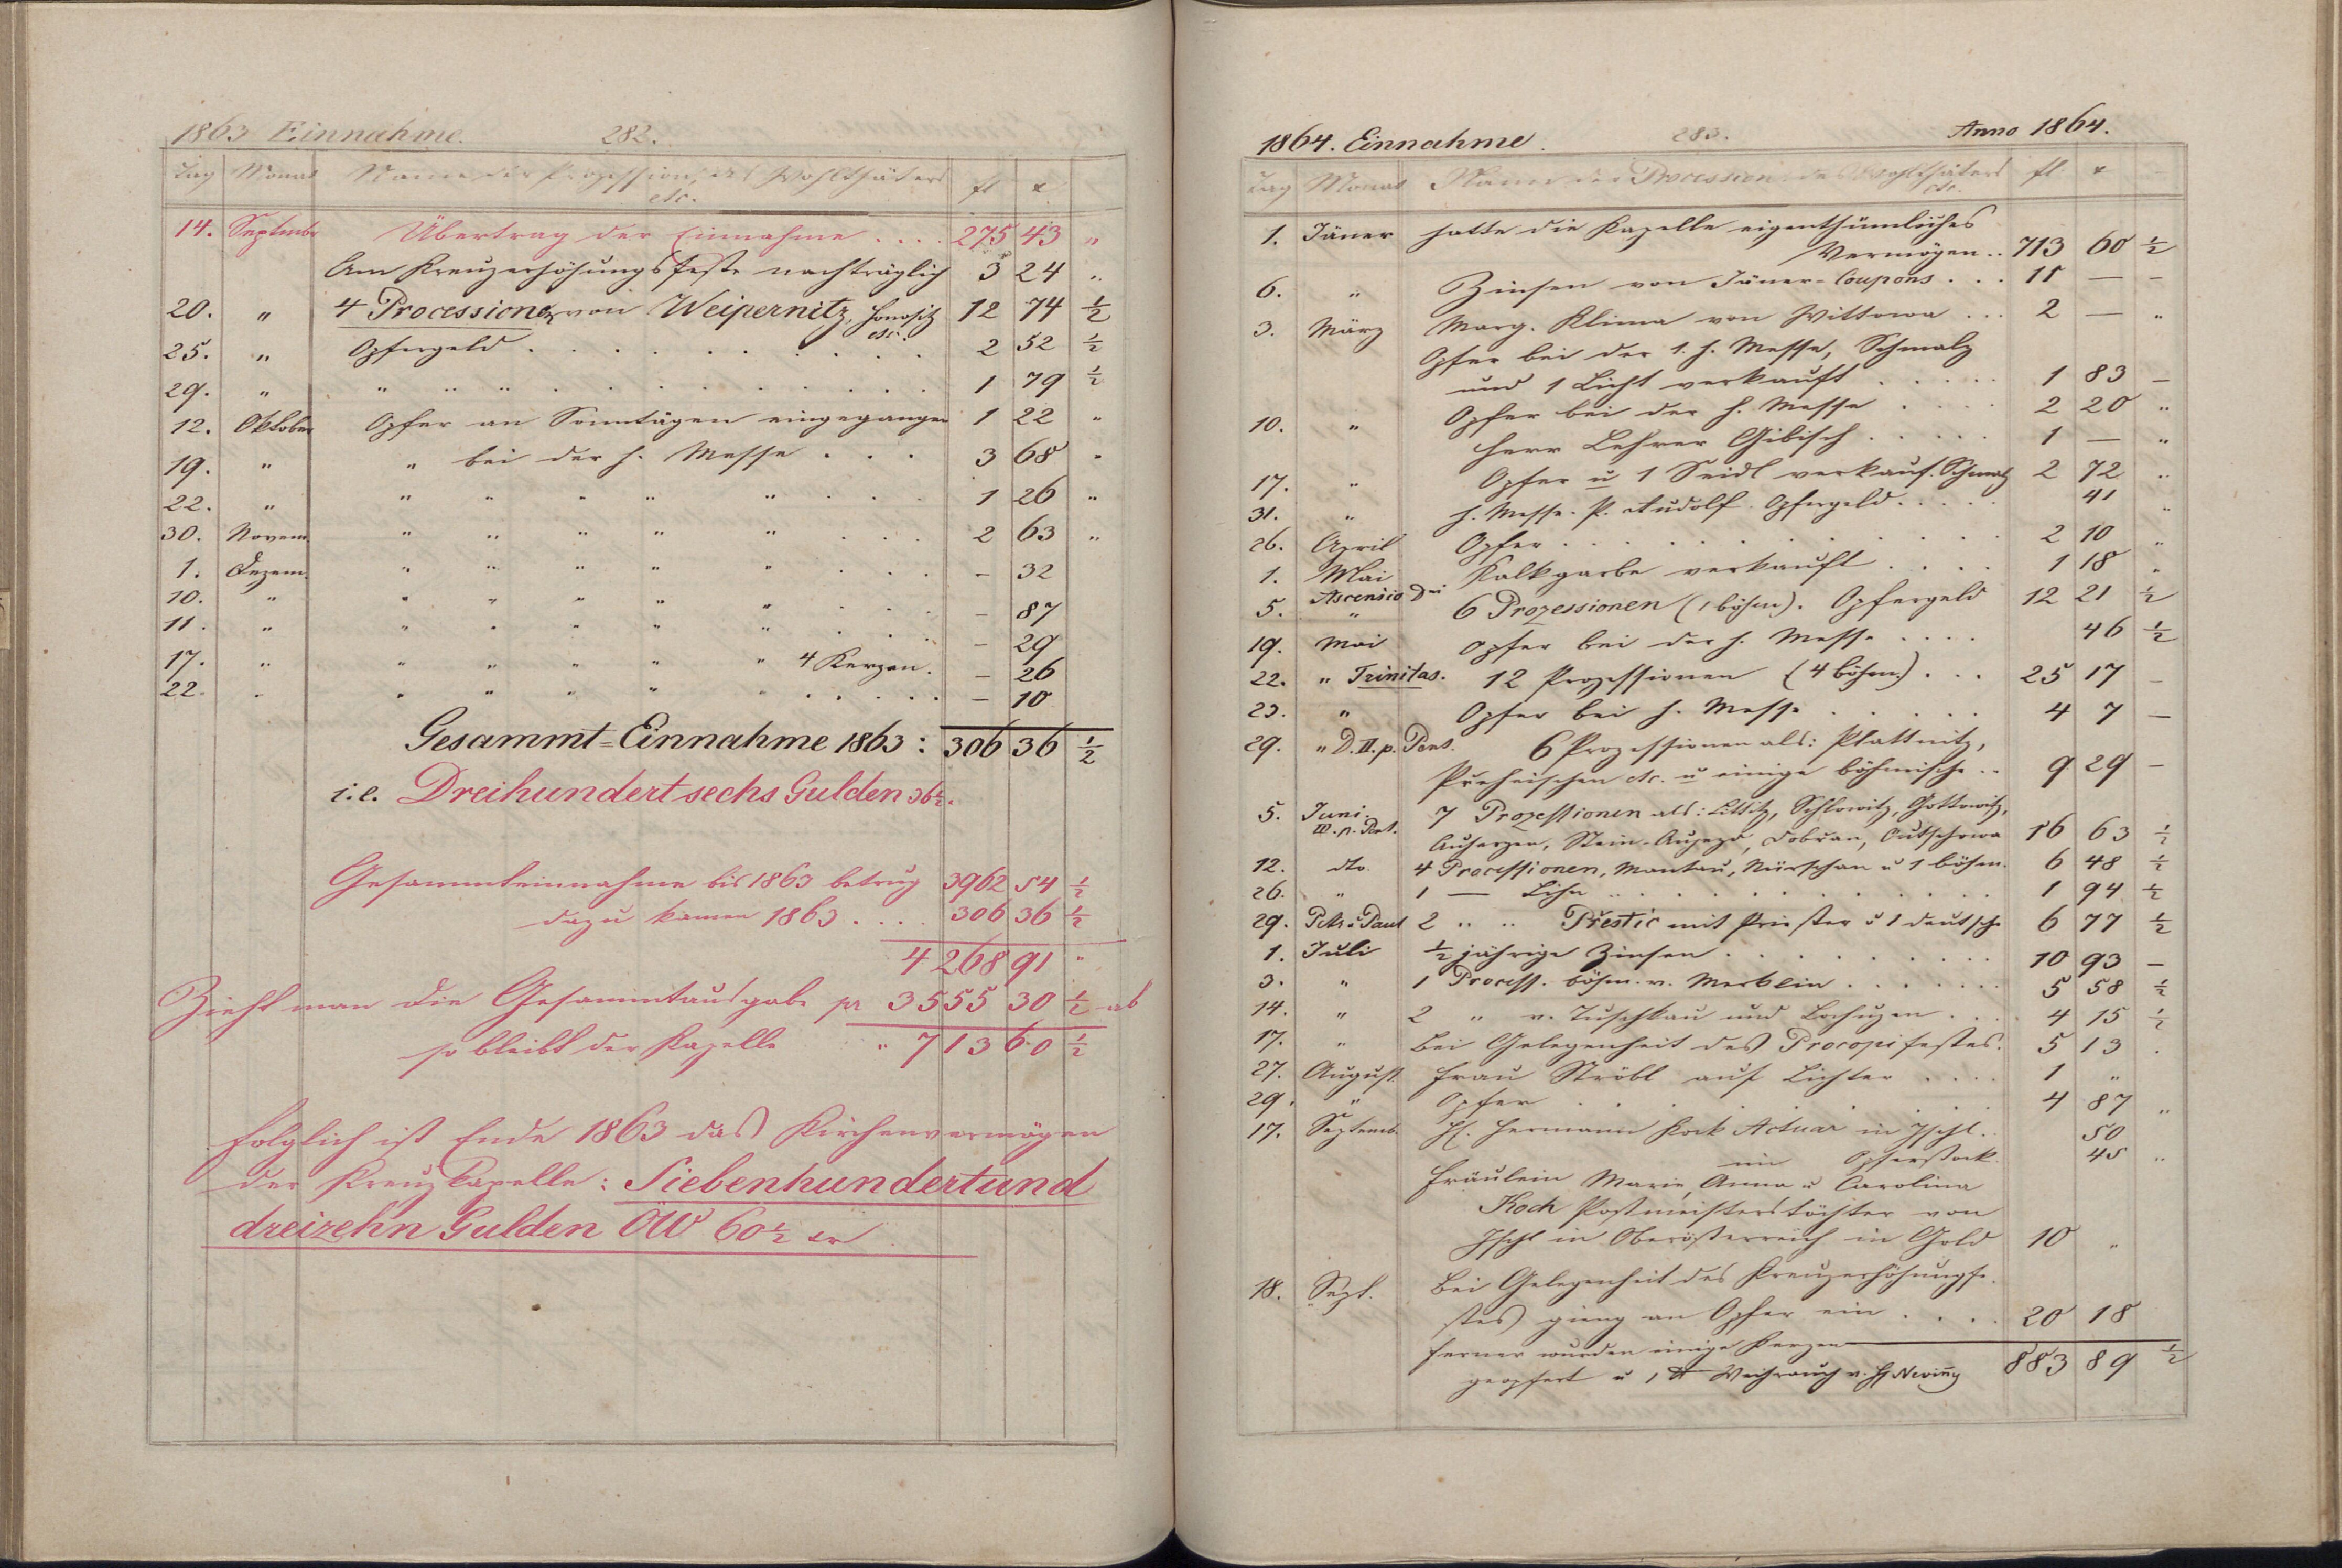 1863 Einnahme. 282.
Tag Monat Name der Prozession, des Wohlthäters fl x
etc.
14. Septembr Übertrag der Einnahme .... 275 43 "
Am Kreuzerhöhungsfeste nachträglich 3 24 "
20. " 4 Processionen von Weipernitz, Honositz 12 74 ½
etc.
25. " Opfergeld . . . . . . . . 2 52 ½
29. " " " " . . . . . . . . 1 79 ½
12. Oktober Opfer an Sonntägen eingegangen 1 22 "
19. " " bei der h. Messe . . . 3 68 "
22. " " " " " " . . . 1 26 "
30. Novem. " " " " " . . . 2 63 "
1. Dezem. " " " " " . . . – 32
10. " " " " " " . . . – 87
11. " " " " " " . . . – 29
17. " " " " " " 4 Kerzen. – 26
22. " " " " " " . . . . . – 10
Gesammt=Einnahme 1863: 306 36 ½
i.e. Dreihundertsechs Gulden 36½.
Gesammteinnahme bis 1863 betrug 3962 54 ½
dazu kamen 1863 .... 306 36 ½
4268 91 "
Zieht man die Gesammtausgabe pr 3555 30 ½ ab
so bleibt der Kapelle " 713 60 ½
folglich ist Ende 1863 das Kirchenvermögen
der Kreuzkapelle: Siebenhundertund
dreizehn Gulden ÖW 60½ xr
1864. Einnahme. 283. Anno 1864.
Tag Monat Name der Procession, des Wohlthäters fl x
etc.
1. Jäner hatte die Kapelle eigenthümliches
Vermögen .. 713 60 ½
6. " Zinsen von Jäner=Coupons . . . 11 – –
3. März Marg. Klima von Wittowa ... 2 – "
Opfer bei der 1. h. Messe, Schmalz
und 1 Licht verkauft . . . . . 1 83 –
10. " Opfer bei der h. Messe . . . . 2 20 "
Herr Lehrer Gibisch . . . . . 1 – "
17. " Opfer u 1 Seidl verkauf. Schmalz 2 72 "
31. " h. Messe. P. Rudolf. Opfergeld . . . . . 41 "
26. April Opfer . . . . . . . . . 2 10 "
1. Mai Kalkgarbe verkauft . . . . 1 18 "
5. Ascensio Dni
" 6 Prozessionen (1 böhm). Opfergeld 12 21 ½
19. Mai Opfer bei der h. Messe .... 46 ½
22. " Trinitas. 12 Prozessionen (4 böhm.) ... 25 17 –
23. " Opfer bei h. Messe . . . . . 4 7 –
29. " D. II. p. Pent. 6 Prozessionen als: Plattnitz,
Pucheischen etc. u einige böhmische .. 9 29 –
5. Juni. 7 Prozessionen als: Littitz, Schlowitz, Gottowitz,
III. p. Pent. Auherzen, Stein-Aujezd, Dobrzan, Lutschowa 16 63 ½
12. dto. 4 Processionen, Mantau, Nürschan u 1 böhm. 6 48 ½
26. " 1 — Lihn . . . . . . . . 1 94 ½
29. Petr u Paul 2 " " Přestic mit Priester u 1 deutsche 6 77 ½
1. Juli ½ jährige Zinsen . . . . . . . . 10 93 –
3. " 1 Process. böhm. v. Merklin . . . . . . 5 58 ½
14. " 2 " v. Tuschkau und Lochuzen . . . 4 15 ½
17. " Bei Gelegenheit des Procopi festes. 5 13 .
27. August Frau Ströbl auf Lichter .... 1 "
29. " Opfer . . . . . . . . 4 87 "
17. Septemb. H. Hermann Kock Actuar in Ischl .. 50
im Opferstock. 45 "
Fräulein Marie, Anna u Carolina
Koch Postmeisterstöchter von
Ischl in Oberösterreich in Gold 10 "
18. Sept. Bei Gelegenheit des Kreuzerhöhungsfe-
stes gieng an Opfer ein .... 20 18
ferner wurden einige Kerzen
geopfert u 1 ℔ Weihrauch v. H. 883 89 ½